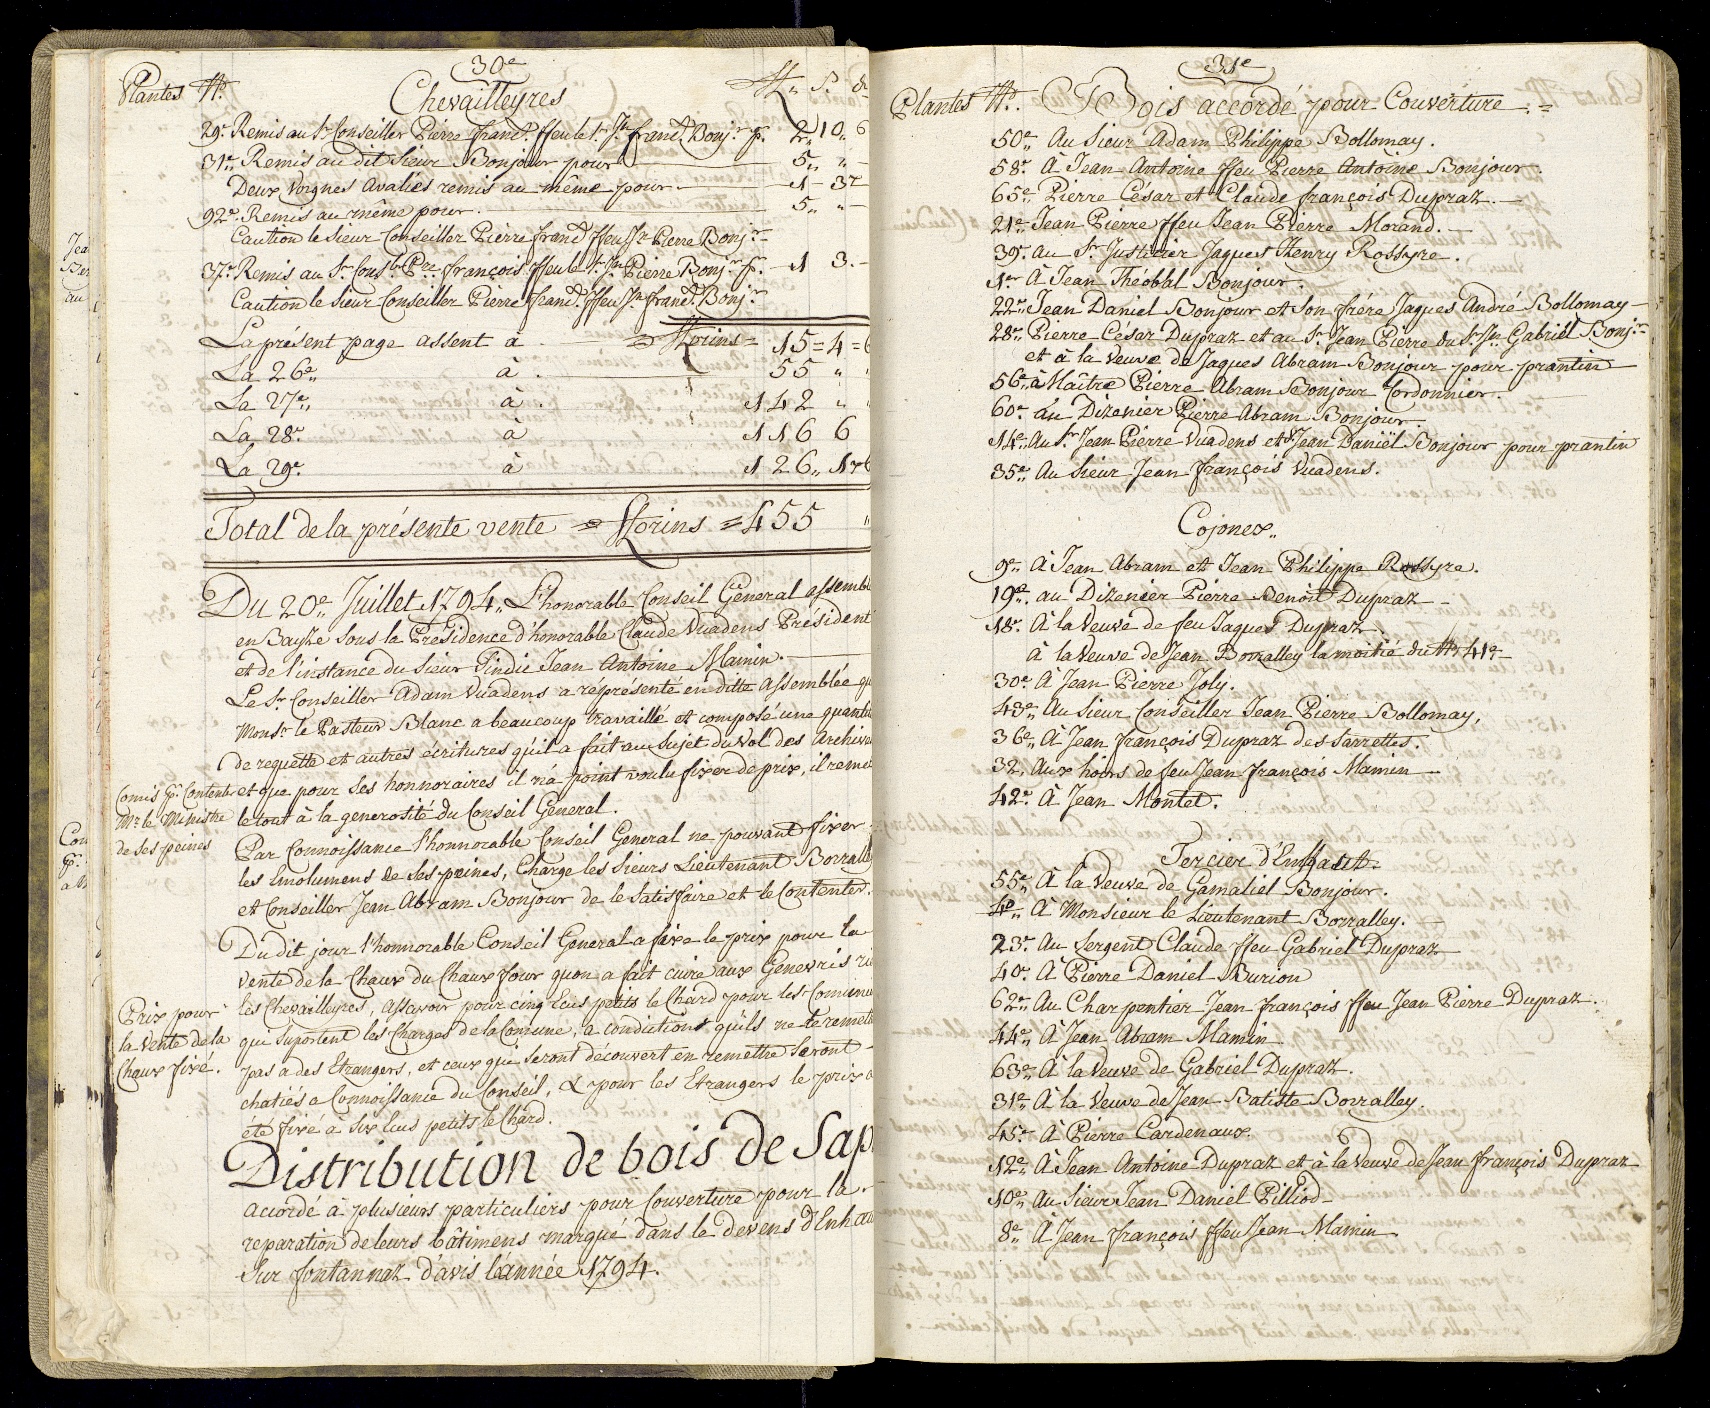 30e
Plantes No. Chevailleyres ff. S. d
29e Remis au Sr. Conseiller Pierre Frans. ffeu le Sr. Jn. Frans. Bonjr. pr. 2,, 10,, 6
31e,, Remis au dit Sieur Bonjour pour 5,, ,, –
Deux Voignes avaliés remis au même pour – 1 – 3
92e. Remis au même pour. 5,, ,, –
Caution le Sieur Conseiller Pierre Frans. ffeu Jn. Pierre Bonjr.
37e Remis au Sr. Consler. Pre. François ffeu le Sr. Jn. Pierre Bonjr. pr. – 1 3. –
Caution le Sieur Conseiller Pierre Frans. ffeu Jn. Frans. Bonjr.
La présent page assent à . = fflorins = 15 = 4 = 6
La 26e,, à . 55 ,,
La 27e,, à . 142 ,,
La 28e. à 116 6
La 29e. à 126,, 1
Total de la présente vente = fflorins = 455 ,,
Du 20e. Juillet 1794,, L'honorable Conseil Géneral assemblé
en Bayse sous la Présidence d'honorable Claude Vuadens Président
et de l'instance du Sieur Sindic Jean Antoine Mamin.
Le Sr. Conseiller Adam Vuadens a réprésenté en ditte Assemblée qu
Monsr. le Pasteur Blanc a beaucoup travaillé et composé une quantit
de requette et autres écritures qu'il a fait au sujet du Vol des Archives
et que pour ses honnoraires il n'a point voulu fixer de prix, il remet
le tout à la generosité du Conseil Géneral.
Comis pr. Contenter
Mr. le Ministre
de ses peines
Par Connoissance l'honnorable Conseil Géneral ne pouvant fixer
les Emolumens de ses peines, Charge les Sieurs Lieutenant Borralley
et Conseiller Jean Abram Bonjour de le Satisfaire et le Contenter.
Du dit jour l'honnorable Conseil Géneral a fixé le prix pour la
vente de la Chaux du Chaux four quon a fait cuire aux Genevris ri
les Chevailleyres, Assavoir pour cinq Ecus petits le Chard pour les Comunie
qui suportent les Charges de la Comune, a condictions qu'ils ne le remette
pas a des Etrangers, et ceux qui seront découvert en remettre seront
chatiés a Connoissance du Conseil, & pour les Etrangers le prix a
eté fixé à six Ecus petits le Chard.
Prix pour
la Vente de la
Chaux fixé.
Distribution de bois de Sap
accordé à plusieurs particuliers pour Couverture pour la
reparation de leurs bâtimens marqué dans le devens d'Enhaut
Sur Fontannaz d'avis l'année 1794.
31e
Plantes No. Bois accordé pour Couverture . =
50e,, Au Sieur Adam Philippe Bollomay.
58e. A Jean Antoine ffeu Pierre Antoine Bonjour.
65e,, Pierre César et Claude François Dupraz. –
21e – Jean Pierre ffeu Jean Pierre Morand. –
39e. au Sr. Justicier Jaques Henry Rossyre.
1er A Jean Théobal Bonjour.
22e,, Jean Daniel Bonjour et Son frére Jaques André Bollomay –
28e,, Pierre César Dupraz et au Sr. Jean Pierre du Sr. Jn. Gabriël Bonjr.
et à la Veuve de Jaques Abram Bonjour pour prantin
56e,, à Maître Pierre Abram Bonjour Cordonnier.
60e. au Dizenier Pierre Abram Bonjour.
14e – Au Sr. Jean Pierre Vuadens et Sr. Jean Daniël Bonjour pour prantin
35e,, Au Sieur Jean François Vuadens.
Cojonex,,
9e,, A Jean Abram et Jean Philippe Rossyre.
19e. au Dizenier Pierre Benoit Dupraz –
18e. A la Veuve de feu Jaques Dupraz.
à la Veuve de Jean Borralley la moitié du No 41e –
30e. A Jean Pierre Joly.
43e,, Au Sieur Conseiller Jean Pierre Bollomay.
36e,, A Jean François Dupraz des Sarrettes.
32,, Aux hoirs de feu Jean François Mamin
42e. A Jean Montet.
Tercier d'Enhaut.
55e,, A la Veuve de Gamaliel Bonjour.
4e,, A Monsieur le Lieutenant Borralley. –
23e. Au Sergent Claude ffeu Gabriel Dupraz
40e. A Pierre Daniel Burion
62e,, Au Charpentier Jean François ffeu Jean Pierre Dupraz.
44e,, A Jean Abram Mamin
63e,, A la Veuve de Gabriel Dupraz.
31e,, A la Veuve de Jean Batiste Borralley.
45e. A Pierre Cardenaux.
12e. A Jean Antoine Dupraz et à la Veuve de Jean François Dupraz
10e,, Au Sieur Jean Daniel Pilliod –
8e,, A Jean François ffeu Jean Mamin